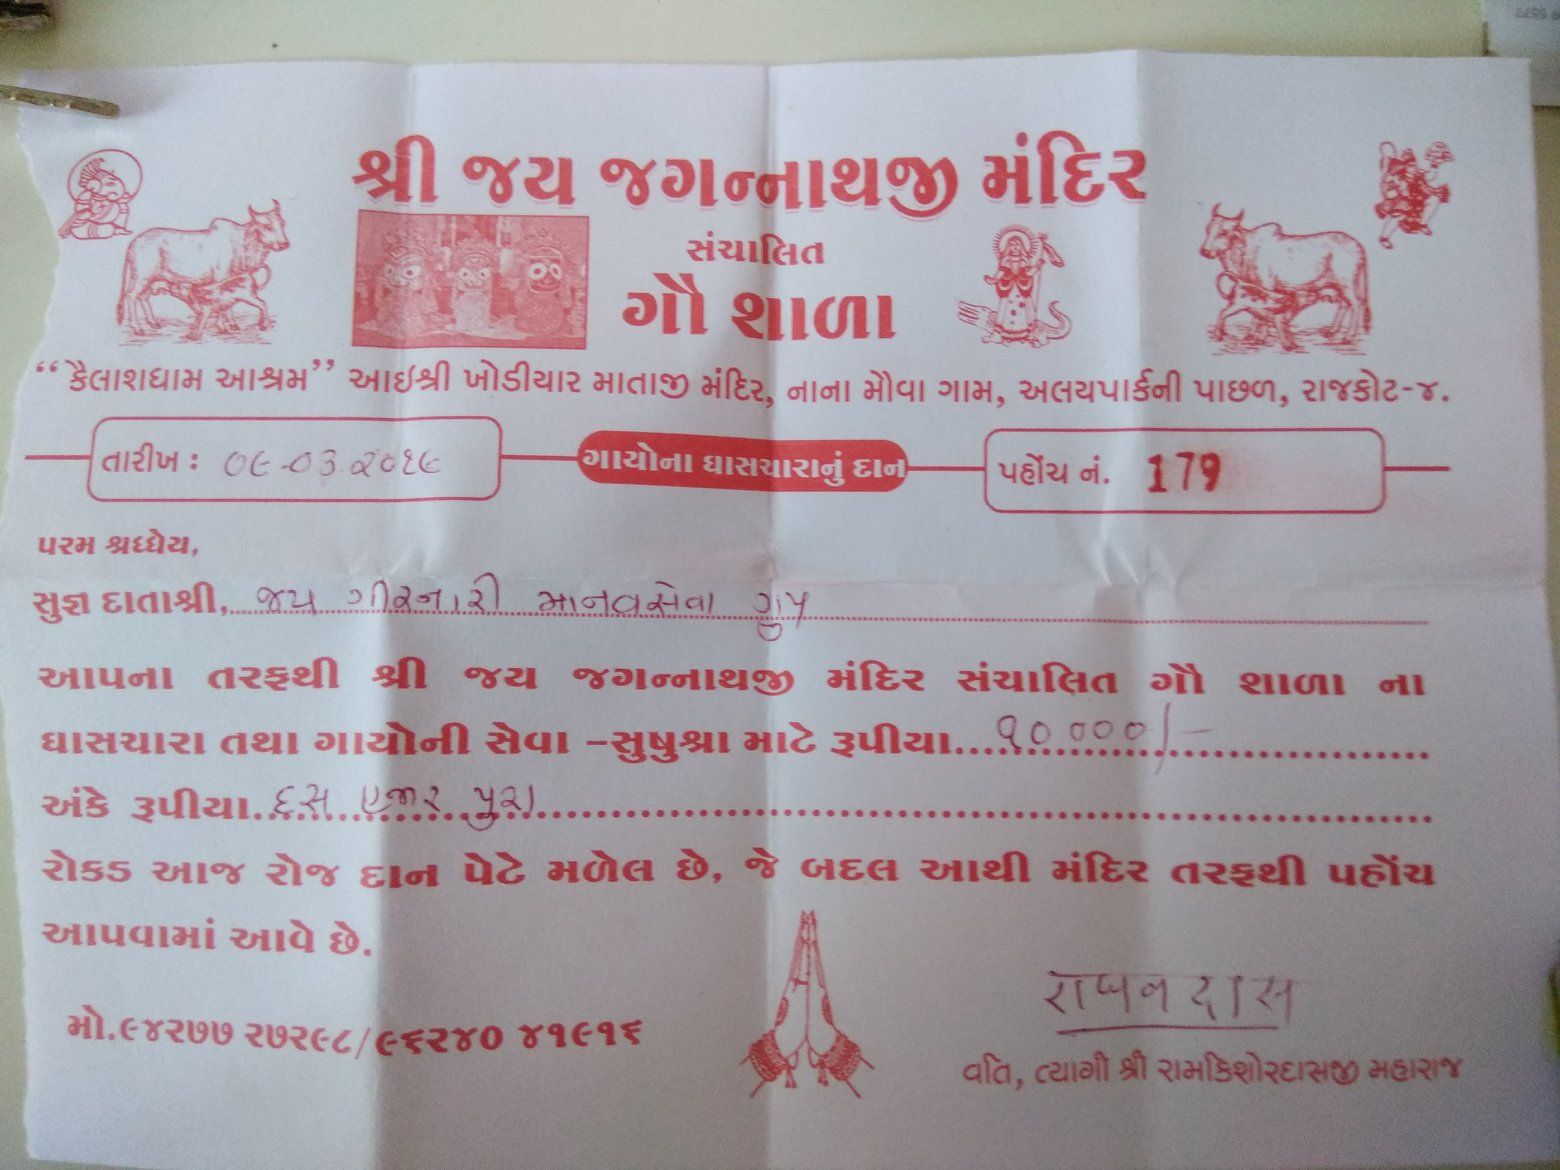 શ્રી જય જગન્નાથજી મંદિર
સંચાલિત
ગૌ શાળા
“કૈલાશધામ આશ્રમ” આઈશ્રી ખોડીયાર માતાજી મંદિર, નાના મૌવા ગામ, અલયપાર્કની પાછળ, રાજકોટ-૪.
તારીખ : ૦૯-૦૩.૨૦૧૯ ગાયોના ઘાસચારાનું દાન પહોંચ નં. 179
પરમ શ્રધ્ધેય,
સુજ્ઞ દાતાશ્રી, જય ગીરનારી માનવસેવા ગ્રુપ
આપના તરફથી શ્રી જય જગન્નાથજી મંદિર સંચાલિત ગૌ શાળા ના
ઘાસચારા તથા ગાયોની સેવા -સુષુશ્રા માટે રૂપીયા... ૧૦૦૦૦/-
અંકે રૂપીયા.. દસ હજાર પુરા
રોકડ આજ રોજ દાન પેટે મળેલ છે, જે બદલ આથી મંદિર તરફથી પહોંચ
આપવામાં આવે છે.
મો.૯૪૨૭૭ ૨૭૨૯૮/૯૬૨૪૦ ૪૧૯૧૬
રાઘવદાસ
વતિ, ત્યાગી શ્રી રામકિશોરદાસજી મહારાજ